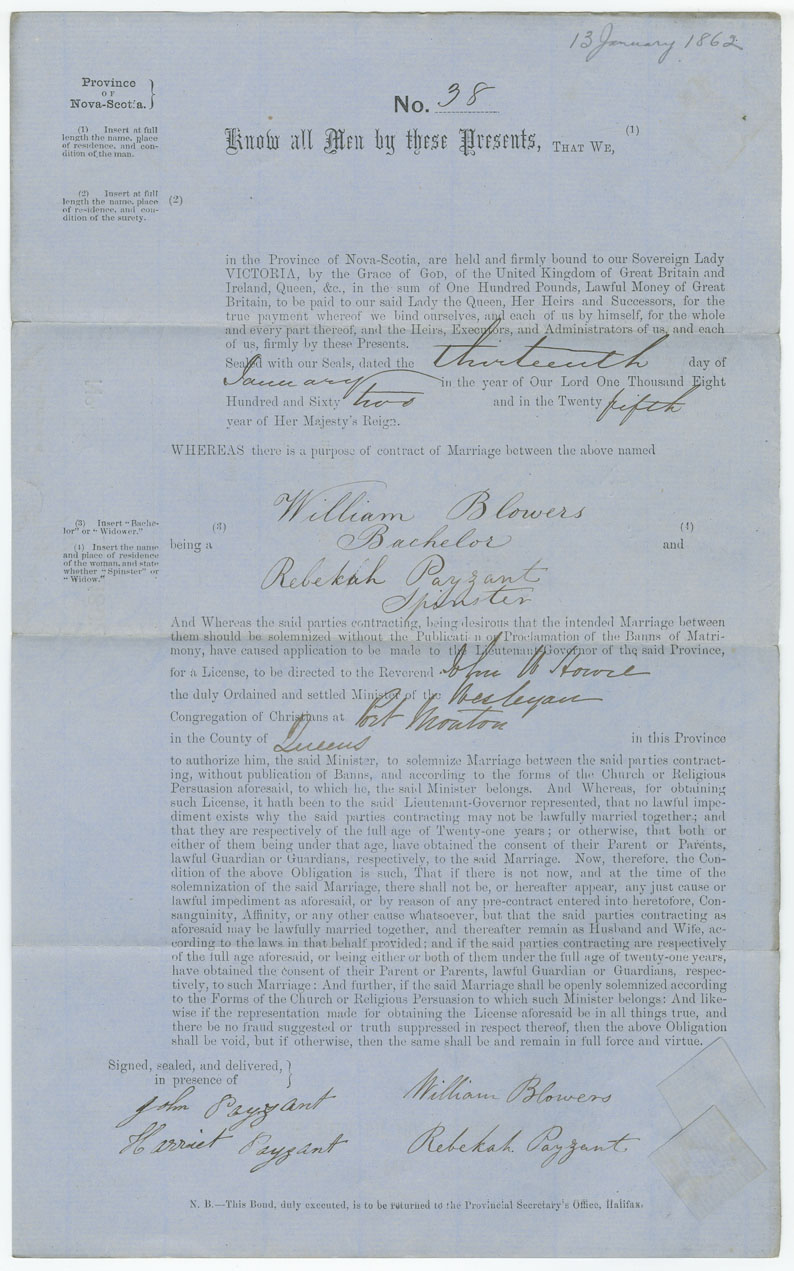 13 January 1862
Province
OF
Nova-Scotia.
(1) Insert at full
length the name, place
of residence, and con-
dition of the man.
No. 38
Know all Men by these Presents, THAT WE, (1)
(2) Insert at full
length the name, place
of residence, and con-
dition of the surety.
(2)
in the Province of Nova-Scotia, are held and firmly bound to our Sovereign Lady
VICTORIA, by the Grace of GOD, of the United Kingdom of Great Britain and
Ireland, Queen, &c., in the sum of One Hundred Pounds, Lawful Money of Great
Britain, to be paid to our said Lady the Queen, Her Heirs and Successors, for the
true payment whereof we bind ourselves, and each of us by himself, for the whole
and every part thereof, and the Heirs, Executors, and Administrators of us, and each
of us, firmly by these Presents.
Sealed with our Seals, dated the thirteenth day of
January in the year of Our Lord One Thousand Eight
Hundred and Sixty two and in the Twenty fifth
year of Her Majesty's Reign.
WHEREAS there is a purpose of contract of Marriage between the above named
William Blowers
(3) Insert "Bache-
lor" or "Widower."
(4) Insert the name
and place of residence
of the woman, and state
whether "Spinster" or
"Widow."
being a (3) Bachelor and (4)
Rebekah Payzant
Spinster
And Whereas the said parties contracting, being desirous that the intended Marriage between
them should be solemnized without the Publicati n or Proclamation of the Banns of Matri-
mony, have caused application to be made to the Lieutenant-Governor of the said Province,
for a License, to be directed to the Reverend John W Howie
the duly Ordained and settled Minister of the Wesleyan
Congregation of Christians at Port Mouton
in the County of Queens in this Province
to authorize him, the said Minister, to solemnize Marriage between the said parties contract-
ing, without publication of Banns, and according to the forms of the Church or Religious
Persuasion aforesaid, to which he, the said Minister belongs. And Whereas, for obtaining
such License, it hath been to the said Lieutenant-Governor represented, that no lawful impe-
diment exists why the said parties contracting may not be lawfully married together; and
that they are respectively of the full age of Twenty-one years; or otherwise, that both or
either of them being under that age, have obtained the consent of their Parent or Parents,
lawful Guardian or Guardians, respectively, to the said Marriage. Now, therefore, the Con-
dition of the above Obligation is such, That if there is not now, and at the time of the
solemnization of the said Marriage, there shall not be, or hereafter appear, any just cause or
lawful impediment as aforesaid, or by reason of any pre-contract entered into heretofore, Con-
sanguinity, Affinity, or any other cause whatsoever, but that the said parties contracting as
aforesaid may be lawfully married together, and thereafter remain as Husband and Wife, ac-
cording to the laws in that behalf provided; and if the said parties contracting are respectively
of the full age aforesaid, or being either or both of them under the full age of twenty-one years,
have obtained the consent of their Parent or Parents, lawful Guardian or Guardians, respec-
tively, to such Marriage: And further, if the said Marriage shall be openly solemnized according
to the Forms of the Church or Religious Persuasion to which such Minister belongs: And like-
wise if the representation made for obtaining the License aforesaid be in all things true, and
there be no fraud suggested or truth suppressed in respect thereof, then the above Obligation
shall be void, but if otherwise, then the same shall be and remain in full force and virtue.
Signed, sealed, and delivered,
in presence of
John Payzant
Harriet Payzant
William Blowers
Rebekah Payzant
N. B.—This Bond, duly executed, is to be returned to the Provincial Secretary's Office, Halifax.